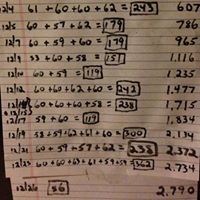 12/4 61 + 60 + 60 + 62 = 243 607
12/5 60 + 57 + 62 = 179 786
12/7 60 + 59 + 60 = 179 965
12/9 33 + 60 + 58 = 151 1,116
12/10 60 + 59 = 119 1,235
60 + 60 + 62 + 60 = 242 1,477
60 + 60 + 60 + 58 = 238 1,715
12/17 59 + 60 = 119 1,834
12/19 58 + 59 + 62 + 61 + 60 = 300 2,134
12/21 60 + 59 + 57 + 62 = 238 2,372
60 + 60 + 63 + 61 + 59 + 59 = 362 2,734
12/26 56 2,790